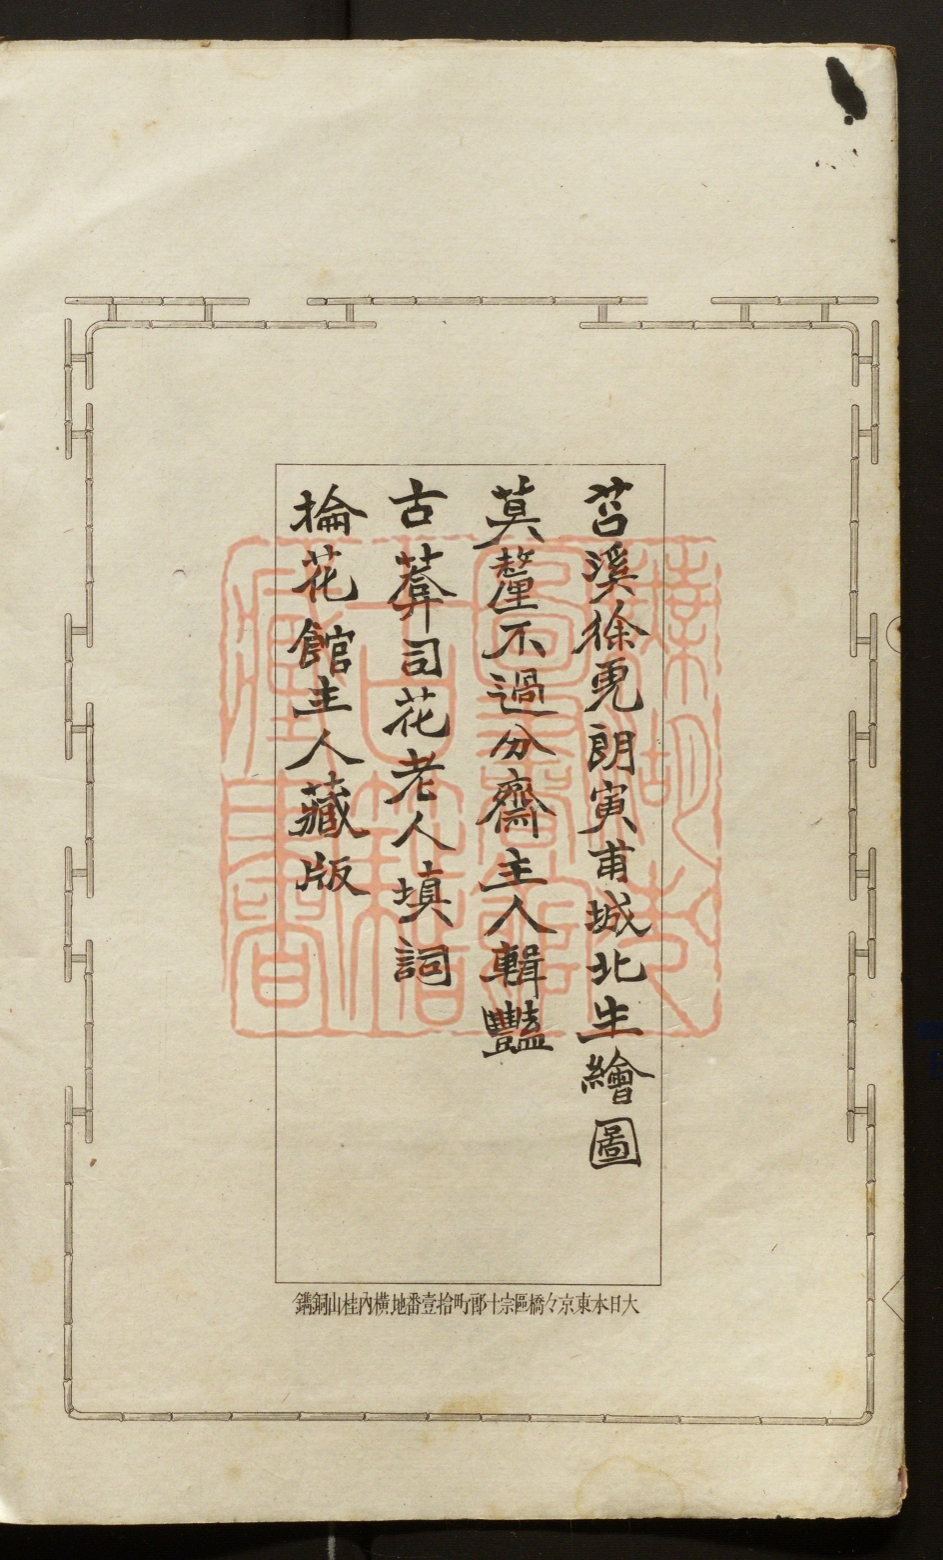 苕溪徐虎朗寅甫城北生繪圖
莫釐不過分齋主人輯豔
古葊司花老人填詞
掄花館主人藏版
大日本東京々橋區宗十郎町拾壹番地橫內桂山銅鐫